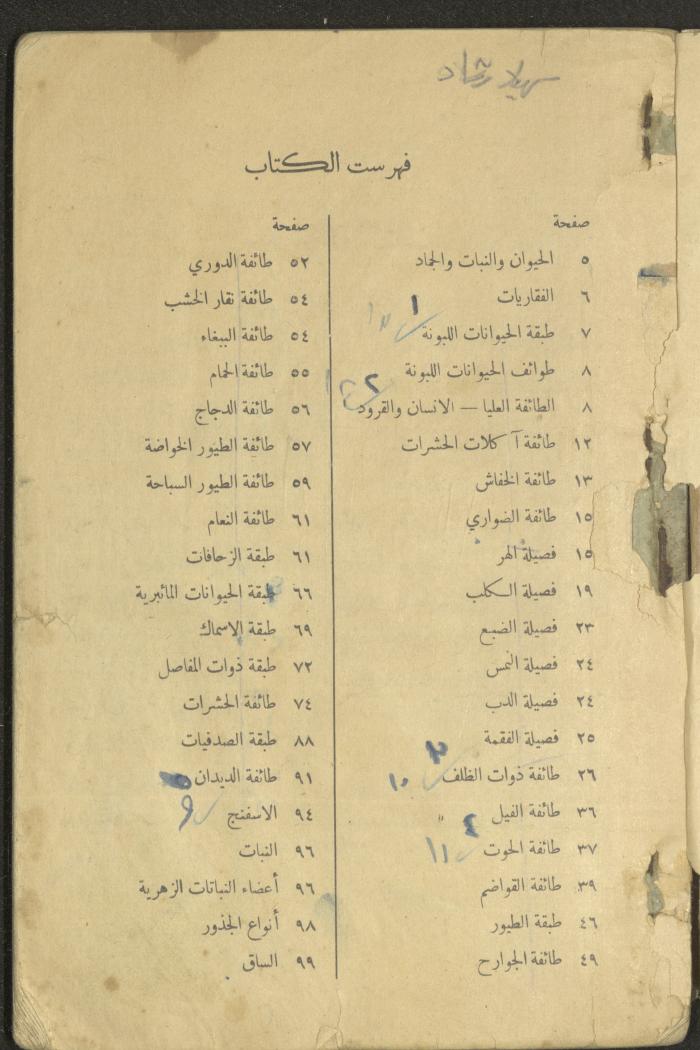 سهيلا رشاد
فهرست الكتاب
صفحة
٥ الحيوان والنبات والجماد
٦ الفقاريات
١
٧ طبقة الحيوانات اللبونة
٨ طوائف الحيوانات اللبونة
٢
٨ الطائفة العليا — الانسان والقرود
١٢ طائفة آكلات الحشرات
١٣ طائفة الخفاش
١٥ طائفة الضواري
١٥ فصيلة الهر
١٩ فصيلة الكلب
٢٣ فصيلة الضبع
٢٤ فصيلة النمس
٢٤ فصيلة الدب
٢٥ فصيلة الفقمة
٣
٢٦ طائفة ذوات الظلف
١٠
٣٦ طائفة الفيل
٤
٣٧ طائفة الحوت
١١
٣٩ طائفة القواضم
٤٦ طبقة الطيور
٤٩ طائفة الجوارح
صفحة
٥٢ طائفة الدوري
٥٤ طائفة نقار الخشب
٥٤ طائفة الببغاء
٥٥ طائفة الحمام
٥٦ طائفة الدجاج
٥٧ طائفة الطيور الخواضة
٥٩ طائفة الطيور السباحة
٦١ طائفة النعام
٦١ طبقة الزحافات
٦٦ طبقة الحيوانات المائبرية
٦٩ طبقة الاسماك
٧٢ طبقة ذوات المفاصل
٧٤ طائفة الحشرات
٨٨ طبقة الصدفيات
٩١ طائفة الديدان
٩٤ الاسفنج
٩٦ النبات
٩٦ أعضاء النباتات الزهرية
٩٨ أنواع الجذور
٩٩ الساق